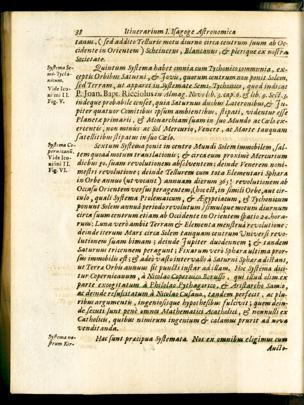 38 Itinerarium I. Isagoge Astronomica
tanui, (sed addito Telluris motu diurno circa centrum suum ab Oc-
cidente in Orientem) Scheinerus, Blancanus, & plerique ex nostra
Societate.
Systema Se-
mi-Tycho-
nicum.
Vide Ico-
nismi II.
Fig. V.
Quintum Systema habet omnia cum Tychonico communia, ex-
ceptis Orbibus Saturni, & Jovis, quorum centrum non ponit Solem,
sed Terram, ut apparet in Systemate Semi-Tychonico, quod indicat
P. Joan. Bapt. Ricciolus in Almag. Novo
indeque probabile censet, quia Saturnus duobus Lateronibus, & Ju-
piter quatuor Comitibus ipsum ambientibus, stipati, videntur esse
Planetæ primarii, & Monarchiam suam in suo Mundo ac Cælo ex-
ercentes, non minus ac Sol Mercurio, Venere, ac Marte tanquam
satellitibus stipatus in suo Cælo.
Systema Co-
pernicanum.
Vide Ico-
nismi II.
Fig. VI.
Sextum Systema ponit in centro Mundi Solem immobilem, sal-
tem quoad motum translationis; & circa eum proximè Mercurium
diebus 90. suam revolutionem absolventem; deinde Venerem novi-
mestri revolutione; deinde Tellurem cum tota Elementari Sphæra
in Orbe annuo (ut vocant) annuam dierum 365; revolutionem ab
Occasu Orientem versus peragentem, (hoc est, in simili Orbe, aut cir-
culo, quali Systema Ptolemaicum, & Ægyptiacum, & Tychonicum
ponunt Solem annua periodo revolutum) simulque motum diurnum
circa suum centrum etiam ab Occidente in Orientem spatio 24. hora-
rum: Luna verò ambit Terram & Elementa menstrua revolutione;
deinde iterum Mars circa Solem tanquam centrum Universi revo-
lutionem suam bimam; deinde Jupiter duodennem; & tandem
Saturnus tricennem peragunt: Fixarum verò Sphæra ultima pror-
sus immobilis est; & adeò vasto intervallo à Saturni Sphæra distans,
ut Terræ Orbis annuus sit puncti instar ad illam. Hoc Systema dici-
tur Copernicanum à Nicolao Copernico Borusso, qui illud olim ex
parte excogitatum à Philolao Pythagorico, & Aristarcho Samio,
ac deinde resuscitatum à Nicolao Cusano, tandem perfecit, ac plu-
ribus argumentis, ingeniosisque hypothesibus fulcivit; quem dein-
de secuti sunt penè omnes Mathematici Acatholici, & nonnulli ex
Catholicis, quibus nimirum ingenium & calamus prurit ad nova
vendit anda.
Systema no-
strum Kir-
Hæc sunt præcipua Systemata. Nos ex omnibus eligimus cum
Aucto-